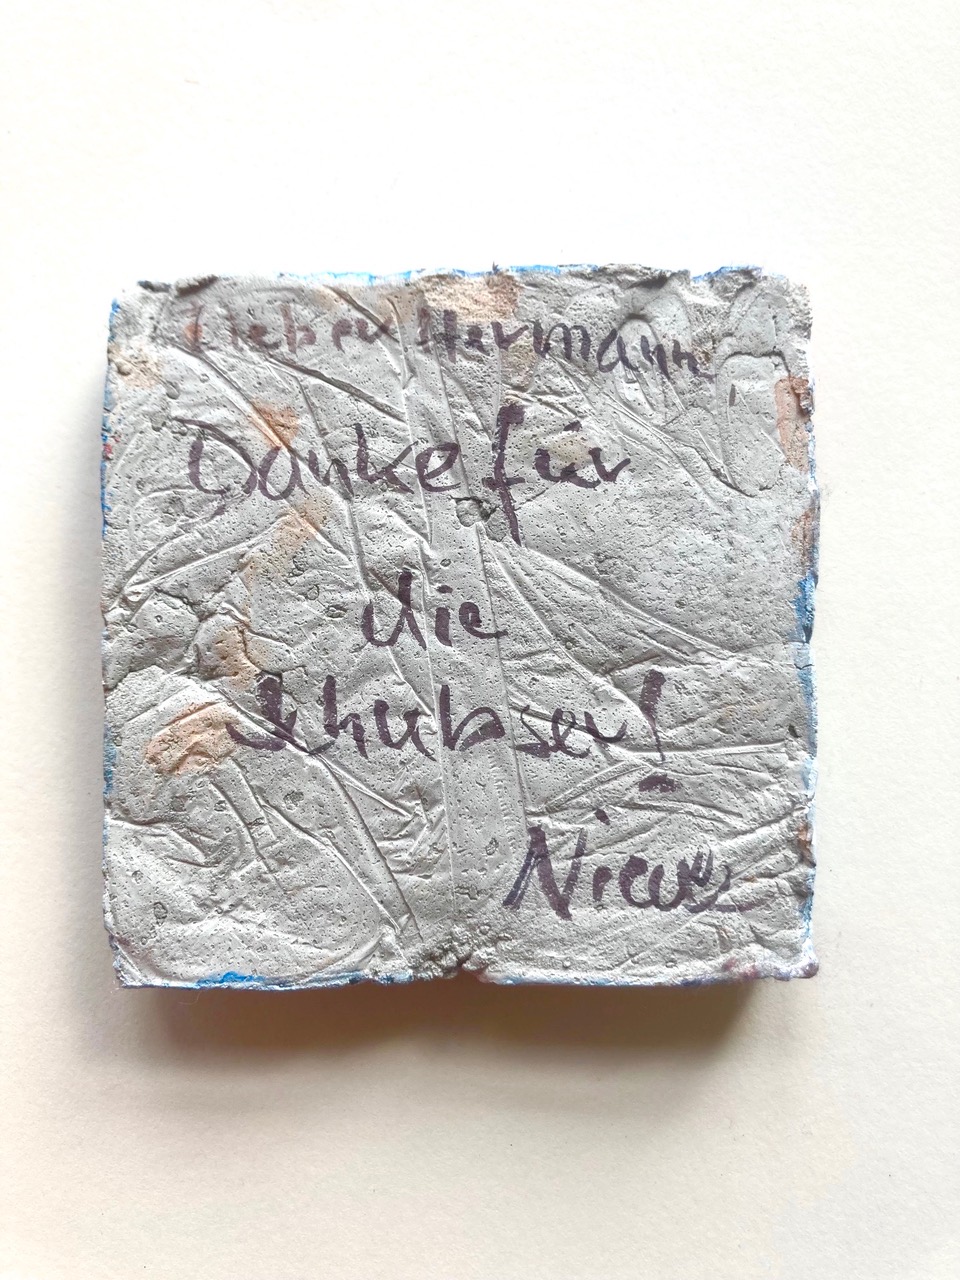 Lieber Hermann
Danke für
die
Schubser!